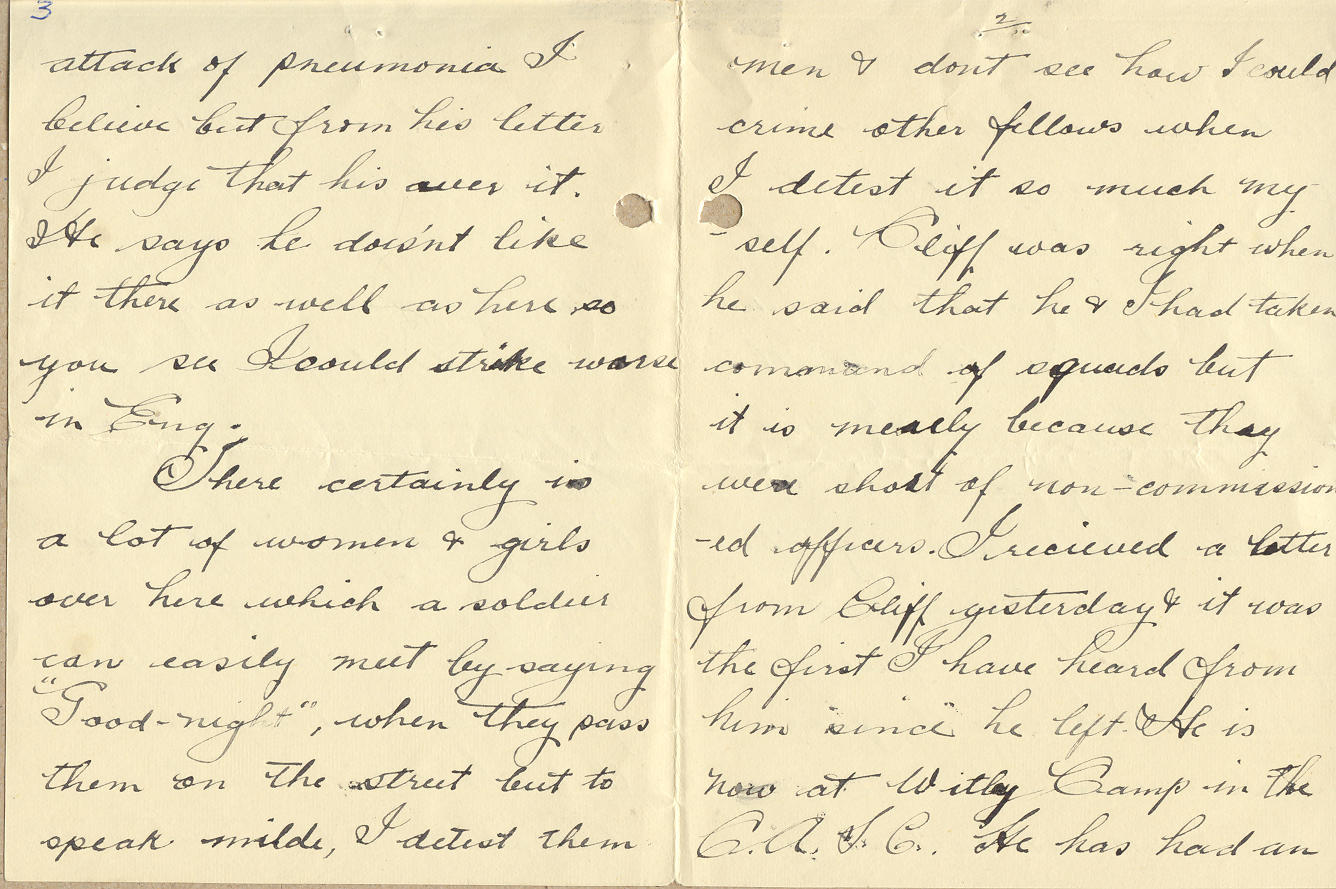 2
men & dont see how I could
crime other fellows when
I detest it so much my
-self. Cliff was right when
he said that he & I had taken
command of squads but
it is mearly because they
were short of non-commission
-ed officers. I recieved a letter
from Cliff yesterday & it was
the first I have heard from
him since he left. He is
now at Witly Camp in the
C.A.S.C. He has had an
3
attack of pneumonia I
believe but from his letter
I judge that his over it.
He says he does'nt like
it there as well as here so
you see I could strike worse
in Eng.
There certainly is
a lot of women & girls
over here which a soldier
can easily meet by saying
"Good-night", when they pass
them on the street but to
speak milde, I detest them